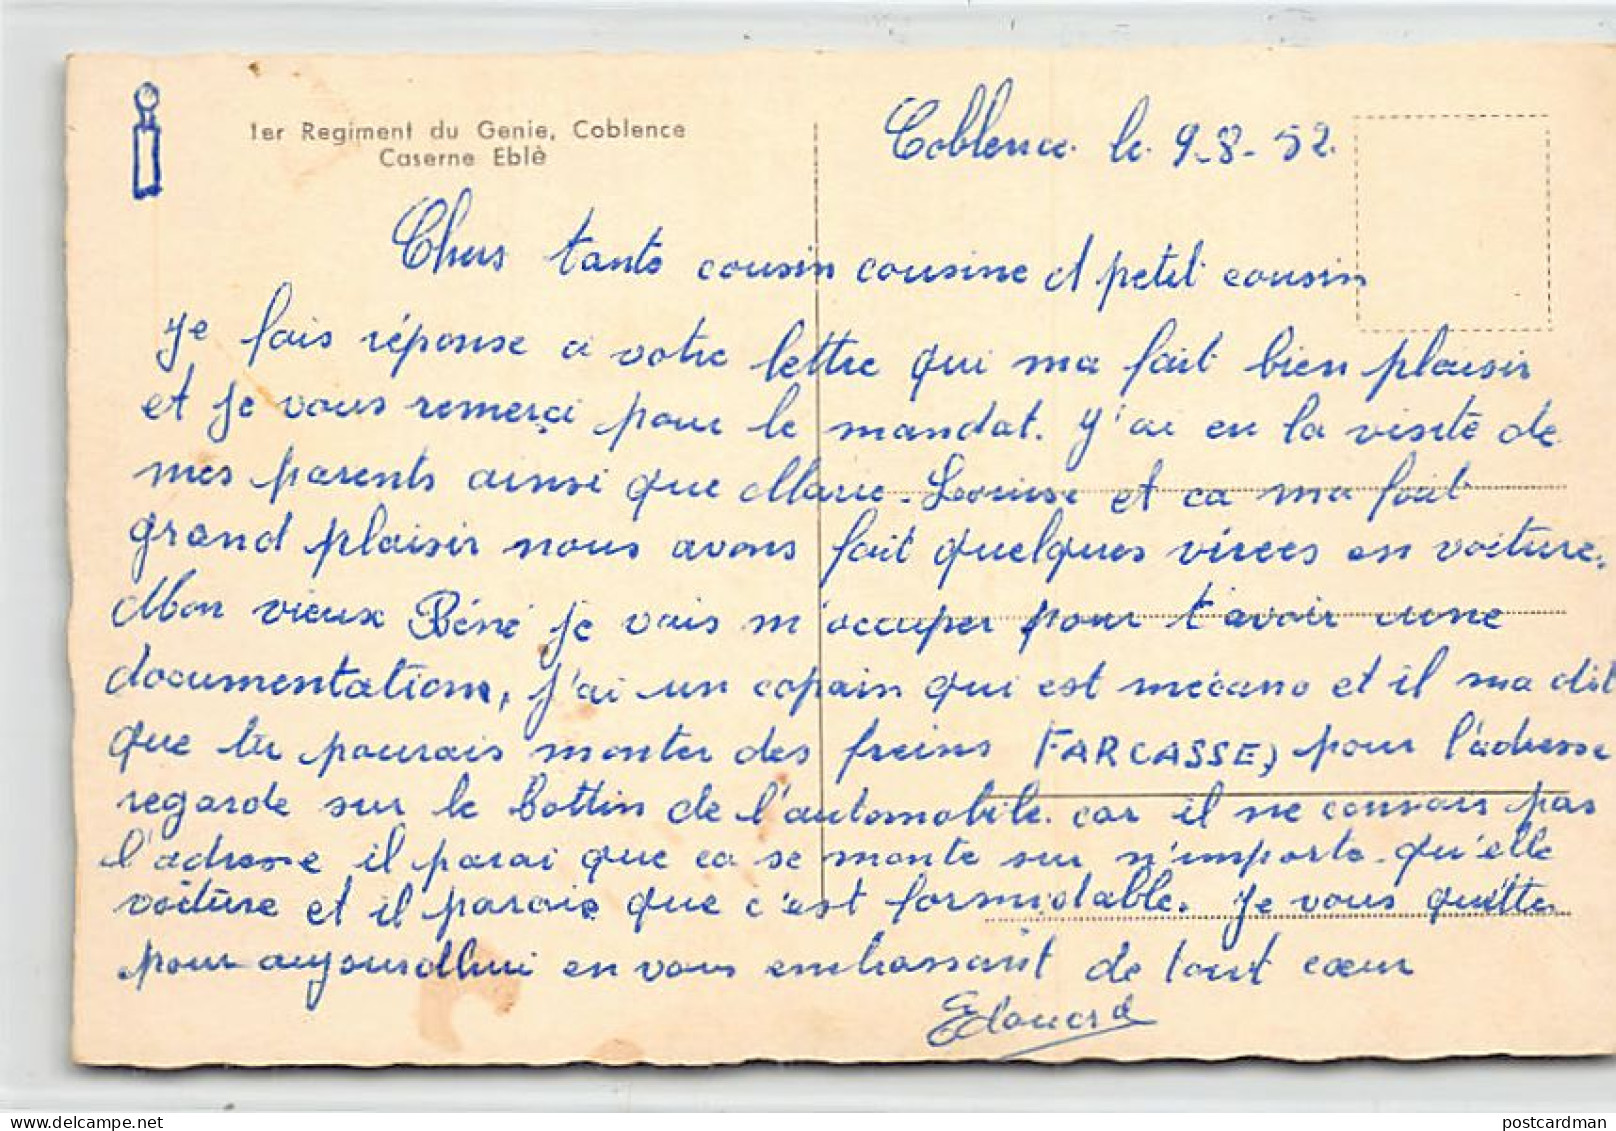 1er Regiment du Genie, Coblence
Caserne Eblè
Coblence le 9-8-52.
Chers tante cousin cousine et petit cousin
Je fais réponse a votre lettre qui ma fait bien plaisir
et je vous remerçi pour le mandat. J'ai eu la visite de
mes parents ainsi que Marie-Louise et ca ma fait
grand plaisir nous avons fait quelques virees en voiture.
Mon vieux Réné je vais m'occuper pour t'avoir une
documentation, j'ai un copain qui est mécano et il ma dit
que tu pourais monter des freins FARCASSE, pour l'adresse
regarde sur le bottin de l'automobile. car il ne connais pas
l'adresse il parai que ca se monte sur n'importe qu'elle
voiture et il parais que c'est formidable. Je vous quitte
pour aujourdhui en vous embrassant de tout cœur
Edouard
postcardman